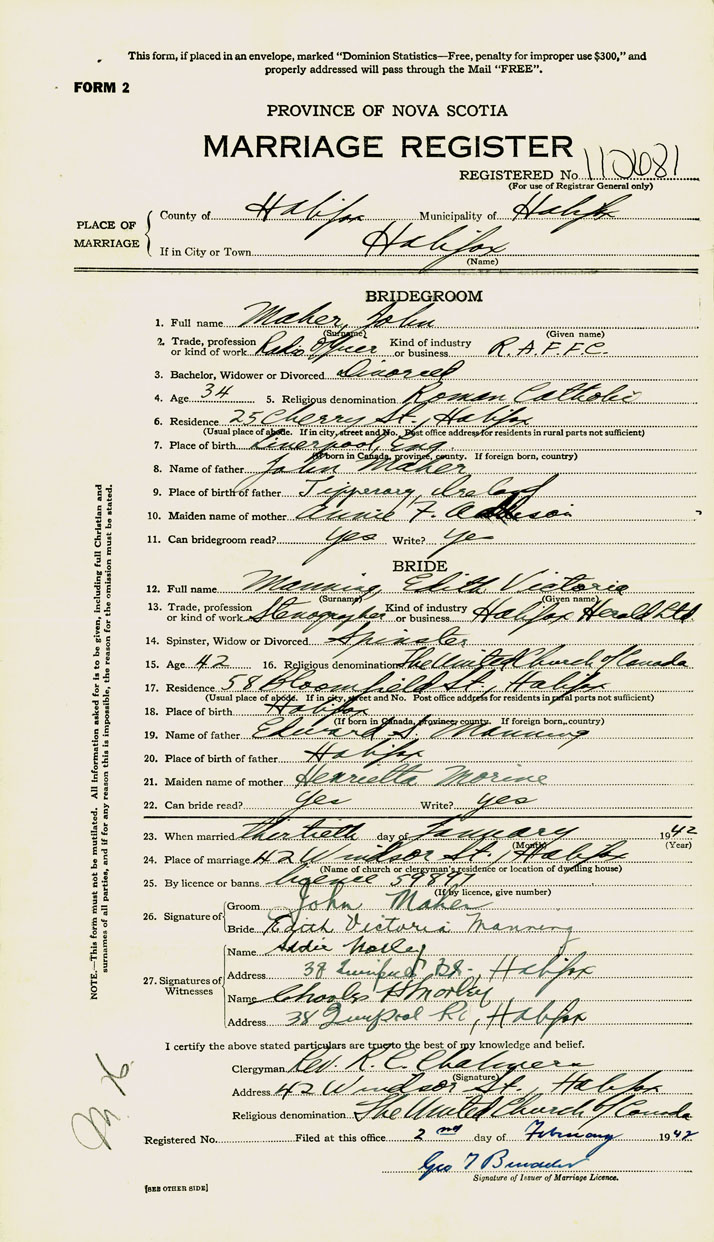 This form, if placed in an envelope, marked "Dominion Statistics—Free, penalty for improper use $300," and
properly addressed will pass through the Mail "FREE".
FORM 2
PROVINCE OF NOVA SCOTIA
MARRIAGE REGISTER
REGISTERED No. 110681
(For use of Registrar General only)
PLACE OF MARRIAGE
County of Halifax Municipality of Halifax
If in City or Town Halifax
(Name)
BRIDEGROOM
1. Full name Maher, John
(Surname) (Given name)
2. Trade, profession or kind of work Radio Officer Kind of industry or business R.A.F.F.C.
3. Bachelor, Widower or Divorced Divorced
4. Age 34 5. Religious denomination Roman Catholic
6. Residence 25 Cherry St, Halifax
(Usual place of abode. If in city, street and No. Post office address for residents in rural parts not sufficient)
7. Place of birth Liverpool, Eng.
(If born in Canada, province, county. If foreign born, country)
8. Name of father John Maher
9. Place of birth of father Tipperary, Ireland
10. Maiden name of mother Annie F.
11. Can bridegroom read? yes Write? yes
BRIDE
12. Full name Manning, Edith Victoria
(Surname) (Given name)
13. Trade, profession or kind of work Stenographer Kind of industry or business Halifax Herald Ltd
14. Spinster, Widow or Divorced Spinster
15. Age 42 16. Religious denomination The United Church of Canada
17. Residence 58 Bloomfield St, Halifax
(Usual place of abode. If in city, street and No. Post office address for residents in rural parts not sufficient)
18. Place of birth Halifax
(If born in Canada, province, county. If foreign born, country)
19. Name of father Edward S. Manning
20. Place of birth of father Halifax
21. Maiden name of mother Henrietta Morine
22. Can bride read? yes Write? yes
23. When married thirtieth day of January 1942
(Month) (Year)
24. Place of marriage 42 Windsor St., Halifax
(Name of church or clergyman's residence or location of dwelling house)
25. By licence or banns licence 59897
(If by licence, give number)
26. Signature of
Groom John Maher
Bride Edith Victoria Manning
27. Signatures of Witnesses
Name Addie Morley
Address 38 Liverpool St., Halifax
Name Charles H Morley
Address 38 Liverpool St, Halifax
I certify the above stated particulars are true to the best of my knowledge and belief.
Clergyman Rev. R. C. Chalmers
(Signature)
Address 42 Windsor St, Halifax
Religious denomination The United Church of Canada
Registered No. Filed at this office 2nd day of February 1942
Geo T
Signature of Issuer of Marriage Licence.
[SEE OTHER SIDE]
NOTE.—This form must not be mutilated. All information asked for is to be given, including full Christian and
surnames of all parties, and if for any reason this is impossible, the reason for the omission must be stated.